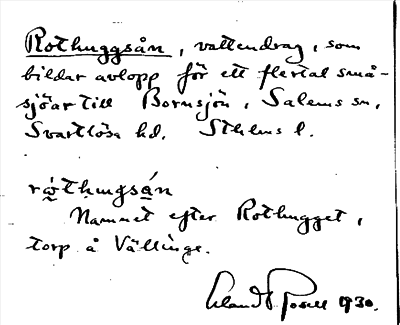 Rothuggsån, vattendrag, som
bildar avlopp för ett flertal små-
sjöar till Bornsjön, Salems sn,
Svartlösa hd. Sthlms l.
rǿthugsán
Namnet efter Rothugget,
torp å Vällinge.
Erland Rosell 1930.